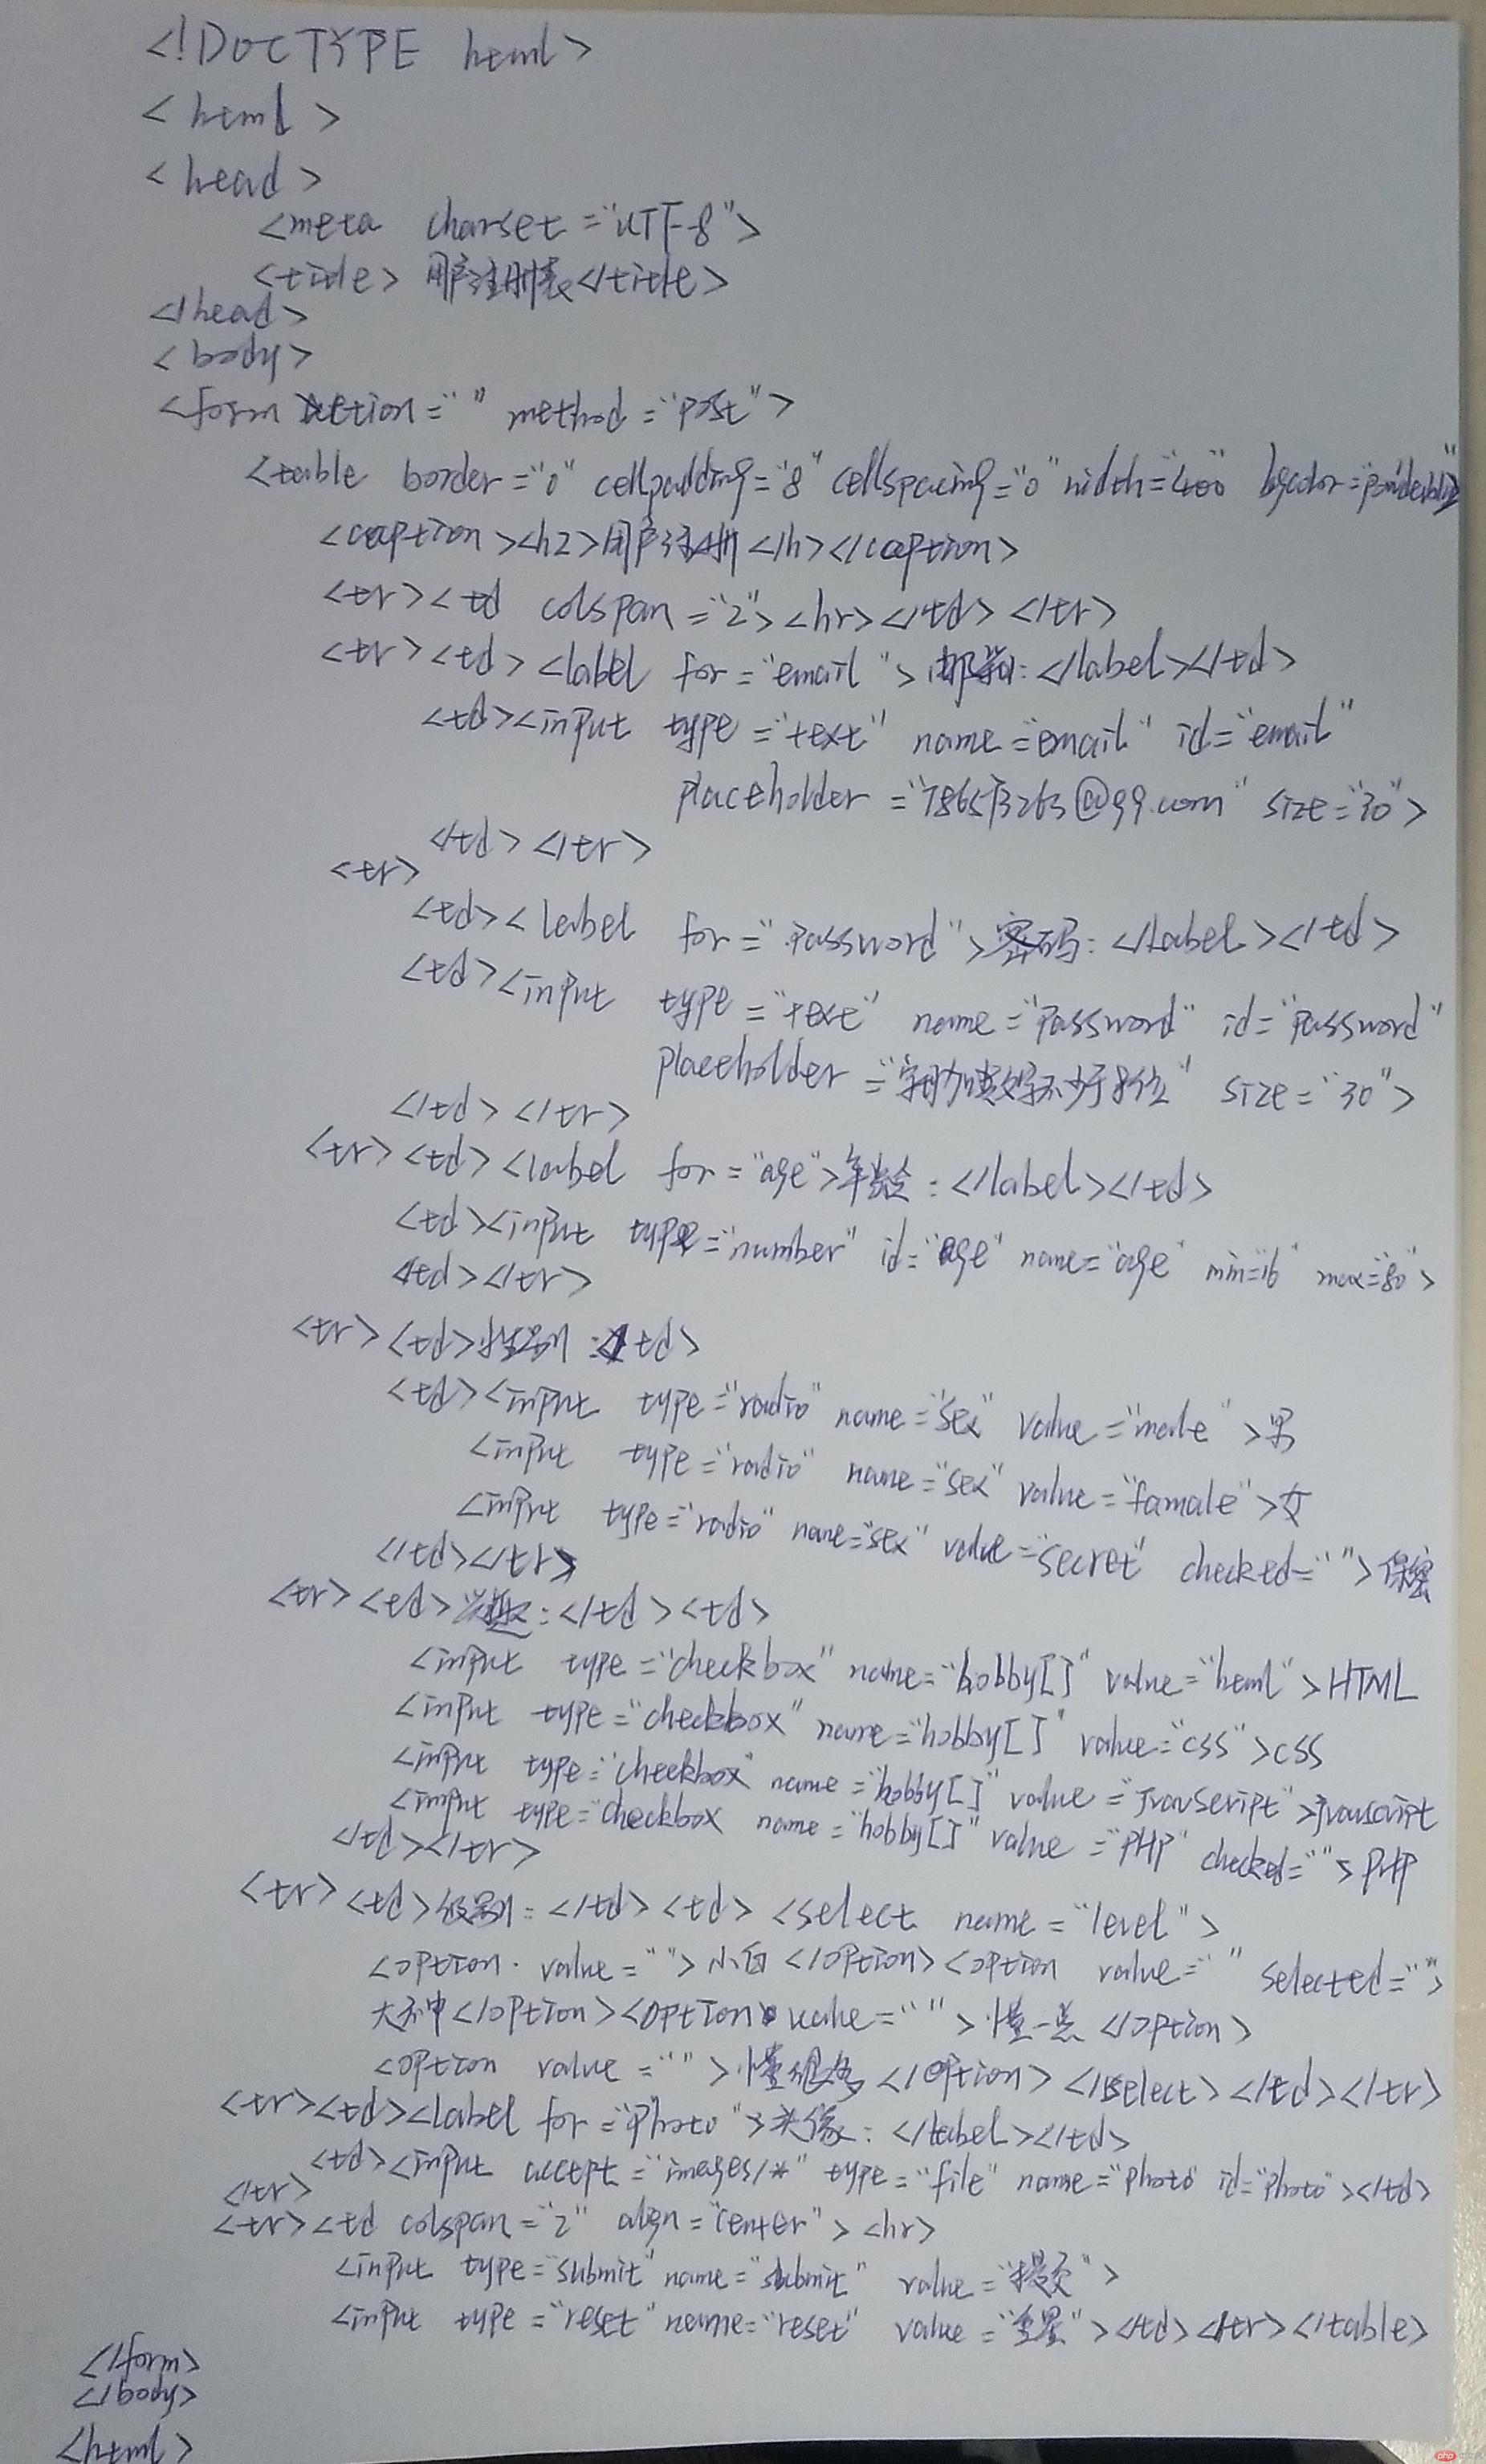 <!DOCTYPE html>
<html>
<head>
<meta charset="UTF-8">
<title>用户注册表</title>
</head>
<body>
<form action=" " method="post">
<table border="0" cellpadding="8" cellspacing="0" width="400"
<caption><h2>用户注册</h></caption>
<tr><td colspan="2"><hr></td></tr>
<tr><td><label for="email">邮箱:</label></td>
<td><input type="text" name="email" id="email"
placeholder= size="30">
</td></tr>
<tr>
<td><label for="password">密码:</label></td>
<td><input type="text" name="password" id="password"
placeholder="字母加数字不少于8位" size="30">
</td></tr>
<tr><td><label for="age">年龄:</label></td>
<td><input type="number" id="age" name="age" min="16" max="80">
</td></tr>
<tr><td>性别:</td>
<td><input type="radio" name="sex" value="male">男
<input type="radio" name="sex" value="famale">女
<input type="radio" name="sex" value="secret" checked="">保密
</td></tr>
<tr><td>兴趣:</td><td>
<input type="checkbox" name="hobby[]" value="html">HTML
<input type="checkbox" name="hobby[]" value="css">CSS
<input type="checkbox" name="hobby[]" value="JavaScript">javascript
<input type="checkbox name="hobby[]" value="PHP" checked="">PHP
</td></tr>
<tr><td>级别:</td><td><select name="level">
<option value="">小白</option><option value=" " selected="">
大神</option><option value=" ">懂一点</option>
<option value="">懂很多</option></select></td></tr>
<tr><td><label for="photo">头像:</label></td>
<td><input accept="images/*" type="file" name="photo" id="photo"></td>
</tr>
<tr><td colspan="2" align="center"><hr>
<input type="submit" name="submit" value="提交">
<input type="reset" name="reset" value="重置"></td></tr></table>
</form>
</body>
</html>
php